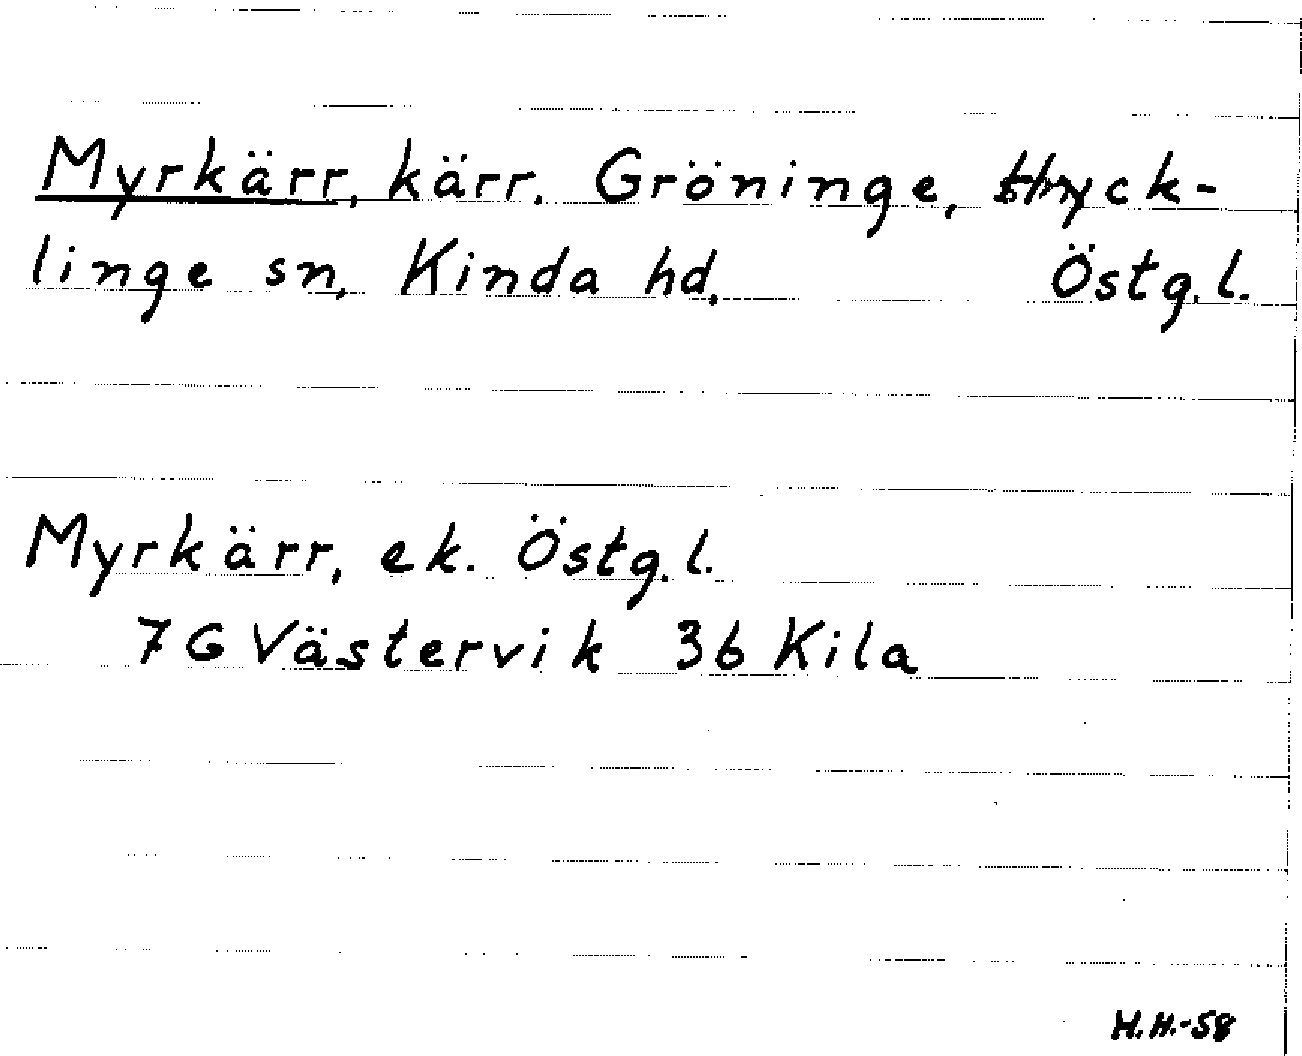 Myrkärr, kärr. Gröninge, Hyck-
linge sn, Kinda hd, Östg.l.
Myrkärr, ek. Östg.l.
7G Västervik 3b Kila
H.H.-58